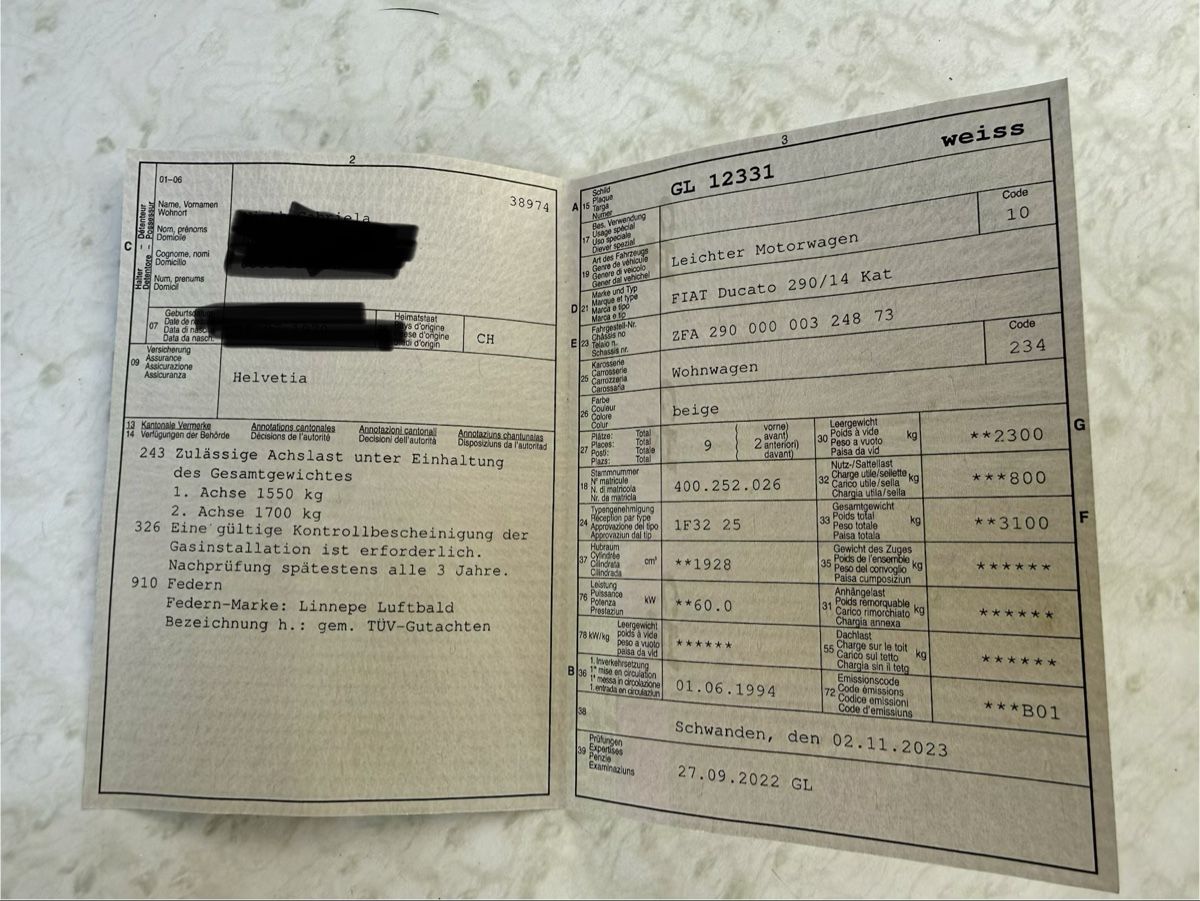 2
01–06
38974
Name, Vornamen
Wohnort
Nom, prénoms
Domicile
Cognome, nomi
Domicilio
Num, prenums
Domicil
C
Halter – Détenteur
Detentore – Possessur
07
Date de
Data di
Data da nasch.
Heimatstaat
Pays d'origine
d'origine
d'origin
CH
09
Versicherung
Assurance
Assicurazione
Assicuranza
Helvetia
13 Kantonale Vermerke Annotations cantonales Annotazioni cantonali Annotaziuns chantunalas
14 Verfügungen der Behörde Décisions de l'autorité Decisioni dell'autorità Disposiziuns da l'autoritad
243 Zulässige Achslast unter Einhaltung
des Gesamtgewichtes
1. Achse 1550 kg
2. Achse 1700 kg
326 Eine gültige Kontrollbescheinigung der
Gasinstallation ist erforderlich.
Nachprüfung spätestens alle 3 Jahre.
910 Federn
Federn-Marke: Linnepe Luftbald
Bezeichnung h.: gem. TÜV-Gutachten
3
weiss
A 15
Schild
Plaque
Targa
Numer
GL 12331
17
Bes. Verwendung
Usage spécial
Uso speciale
Diever spezial
Code
10
19
Art des Fahrzeugs
Genre de véhicule
Genere di veicolo
Gener dal vehichel
Leichter Motorwagen
D 21
Marke und Typ
Marque et type
Marca e tipo
Marca e tip
FIAT Ducato 290/14 Kat
E 23
Fahrgestell-Nr.
Châssis no
Telaio n.
Schassis nr.
ZFA 290 000 003 248 73
25
Karosserie
Carrosserie
Carrozzeria
Carossaria
Wohnwagen
Code
234
26
Farbe
Couleur
Colore
Colur
beige
27
Plätze: Total
Places: Total
Posti: Totale
Plazs: Total
9
2
vorne)
avant)
anteriori)
davant)
G
30
Leergewicht
Poids à vide
Peso a vuoto
Paisa da vid
kg
**2300
18
Stammnummer
N° matricule
N. di matricola
Nr. da matricla
400.252.026
32
Nutz-/Sattellast
Charge utile/sellette
Carico utile/sella
Chargia utila/sella
kg
***800
24
Typengenehmigung
Réception par type
Approvazione del tipo
Approvaziun dal tip
1F32 25
F
33
Gesamtgewicht
Poids total
Peso totale
Paisa totala
kg
**3100
37
Hubraum
Cylindrée
Cilindrata
Cilindrada
cm³
**1928
35
Gewicht des Zuges
Poids de l'ensemble
Peso del convoglio
Paisa cumposiziun
kg
******
76
Leistung
Puissance
Potenza
Prestaziun
kW
**60.0
31
Anhängelast
Poids remorquable
Carico rimorchiato
Chargia annexa
kg
******
78 kW/kg
Leergewicht
poids à vide
peso a vuoto
paisa da vid
******
55
Dachlast
Charge sur le toit
Carico sul tetto
Chargia sin il tetg
kg
******
B 36
1. Inverkehrsetzung
1re mise en circulation
1a messa in circolazione
1. entrada en circulaziun
01.06.1994
72
Emissionscode
Code émissions
Codice emissioni
Code d'emissiuns
***B01
38
Schwanden, den 02.11.2023
39
Prüfungen
Expertises
Perizie
Examinaziuns
27.09.2022 GL